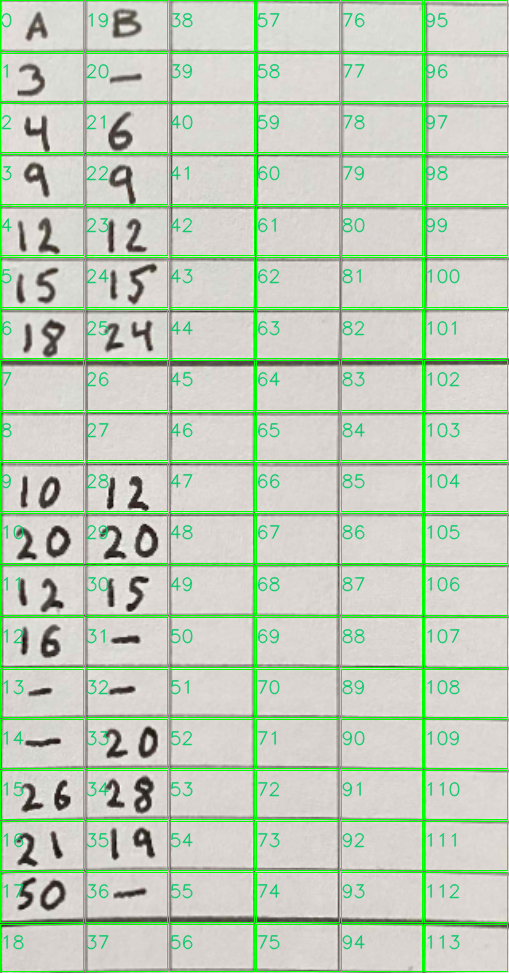 0 A 19 B 38 57 76 95
1 3 20 – 39 58 77 96
2 4 21 6 40 59 78 97
3 9 22 9 41 60 79 98
4 12 23 12 42 61 80 99
5 15 24 15 43 62 81 100
6 18 25 24 44 63 82 101
7 26 45 64 83 102
8 27 46 65 84 103
9 10 28 12 47 66 85 104
10 20 29 20 48 67 86 105
11 12 30 15 49 68 87 106
12 16 31 – 50 69 88 107
13 – 32 – 51 70 89 108
14 – 33 20 52 71 90 109
15 26 34 28 53 72 91 110
16 21 35 19 54 73 92 111
17 50 36 – 55 74 93 112
18 37 56 75 94 113